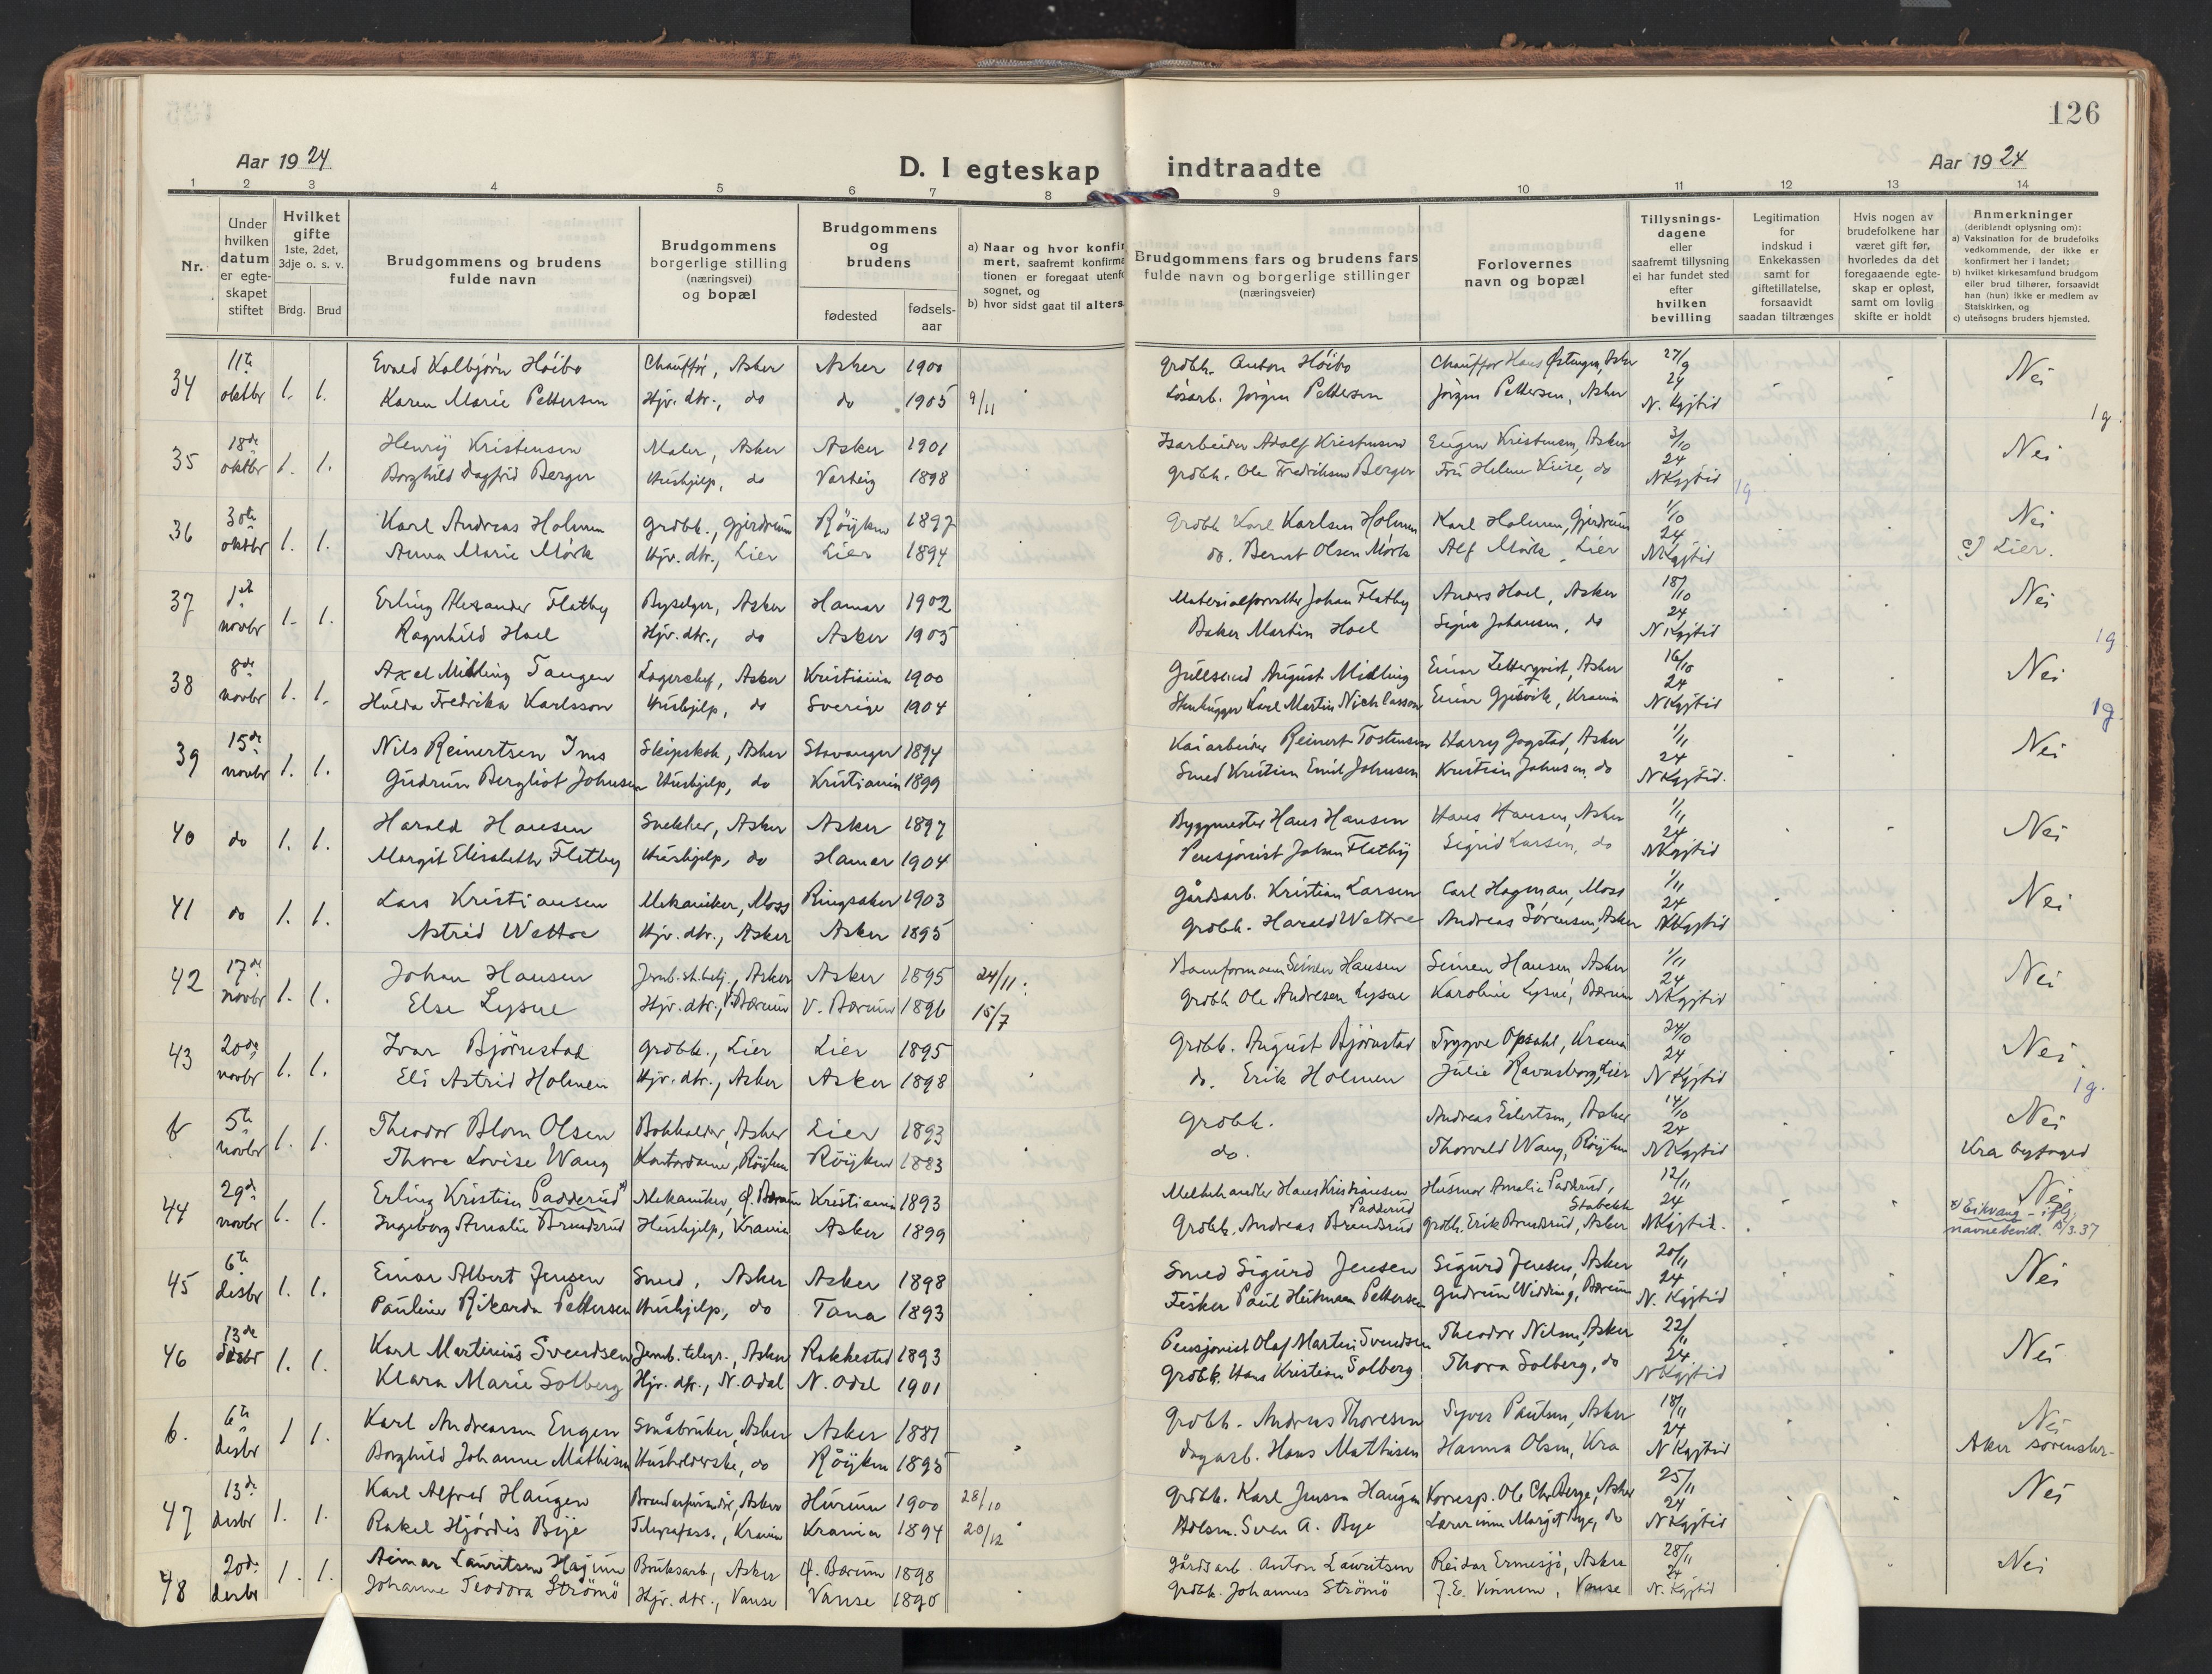 126
Aar 1924
D. I egteskap indtraadte
Aar 1924
1 2 3 4 5 6 7 8 9 10 11 12 13 14
Nr.
Under hvilken datum er egteskapet stiftet
Hvilket gifte 1ste, 2det, 3dje o. s. v.
Brdg. Brud
Brudgommens og brudens fulde navn
Brudgommens borgerlige stilling (næringsvei) og bopæl
Brudgommens og brudens
fødested
fødselsaar
a) Naar og hvor konfir
mert, saafremt konfirma
tionen er foregaat utenfo
sognet, og
b) hvor sidst gaat til alters
Brudgommens fars og brudens fars fulde navn og borgerlige stillinger (næringsveier)
Forlovernes navn og bopæl
Tillysningsdagene eller saafremt tillysning ei har fundet sted efter hvilken bevilling
Legitimation for indskud i Enkekassen samt for giftetillatelse, forsaavidt saadan tiltrænges
Hvis nogen av brudefolkene har været gift før, hvorledes da det foregaaende egteskap er opløst, samt om lovlig skifte er holdt
Anmerkninger
(deriblandt oplysning om):
a) Vaksination for de brudefolks vedkommende, der ikke er konfirmert her i landet;
b) hvilket kirkesamfund brudgom eller brud tilhører, forsaavidt han (hun) ikke er medlem av Statskirken, og
c) utensogns bruders hjemsted.
34 11te oktbr 1. 1. Evald Kolbjørn Høibo Chauffør, Asker Asker 1900 Grdbk. Anton Høibo Chauffør Hans Østengen, Asker 27/9 24 Nei
Karen Marie Pettersen Hjv. dtr., do do 1905 9/11 Løsarb. Jørgen Pettersen Jørgen Pettersen, Asker N. Kgjtid
1g.
35 18de oktbr 1. 1. Henry Kristensen Maler, Asker Asker 1901 Isarbeider Adolf Kristensen Eugen Kristensen, Asker 3/10 24 Nei
Borghild Dagfrid Berger Hushjelp, do Varteig 1898 Grdbk. Ole Fredriksen Berger Fru Helene Kiise, do NKgjtid
1g.
36 30te oktbr 1. 1. Karl Andreas Holmen Grdbk., Gjerdrum Røyken 1897 Grdbk Karl Karlsen Holmen Karl Holmen, Gjerdrum 1/10 24 Nei
Anna Marie Mørk Hjv. dtr., Lier Lier 1894 do. Bernt Olsen Mørk Alf Mørk, Lier NKgjtid c) Lier.
37 1ste novbr 1. 1. Erling Alexander Flatby Byselger, Asker Hamar 1902 Materialforvalter Johan Flatby Anders Hoel, Asker 18/10 24 Nei
Ragnhild Hoel Hjv. dtr., do Asker 1905 Baker Martin Hoel Signe Johansen, do N Kgjtid
1g
38 8de novbr 1. 1. Axel Midling Tangen Lagerchef, Asker Kristiania 1900 Gullsmed August Midling Einar Zetterqvist, Asker 16/10 24 Nei
Hulda Fredrika Karlsson Hushjelp, do Sverige 1904 Stenhugger Karl Martin Nichlasson Einar Gjesvik, Krania N Kgjtid
1g.
39 15de novbr 1. 1. Nils Reinertsen Ims Skipskok, Asker Stavanger 1894 Kaiarbeider Reinert Tostensen Harry Gogstad, Asker 1/11 24 Nei
Gudrun Bergliot Johnsen Hushjelp, do Kristiania 1899 Smed Kristian Emil Johnsen Kristian Johnsen, do N Kgjtid.
40 do 1. 1. Harald Hansen Snekker, Asker Asker 1897 Byggmester Hans Hansen Hans Hansen, Asker 1/11 24 Nei
Margit Elisabeth Flatby Hushjelp, do Hamar 1904 Pensjonist Johan Flatby Sigrid Larsen, do NKgjtid
41 do 1. 1. Lars Kristiansen Mekaniker, Moss Ringsaker 1903 Gårdsarb. Kristian Larsen Carl Hagman, Moss 1/11 24 Nei
Astrid Wettre Hjv. dtr., Asker Asker 1895 Grdbk. Harald Wettre Andreas Sørensen, Asker NKgjtid
42 17de novbr 1. 1. Johan Hansen Jernb.st.betj., Asker Asker 1895 24/11. Baneformann Simen Hansen Simen Hansen, Asker 1/11 24 Nei
Else Lysne Hjv. dtr., V.Bærum V. Bærum 1896 15/7 Grdbk Ole Andresen Lysne Karoline Lysne, Bærum NKgjtid
43 20de novbr 1. 1. Ivar Bjørnestad Grdbk., Lier Lier 1895 Grdbk. August Bjørnstad Trygve Opsahl, Krania 24/10 24 Nei
Eli Astrid Holmen Hjv. dtr., Asker Asker 1898 do. Erik Holmen Julie Ravnsborg, Lier N Kgjtid
1g.
b 5te novbr 1. 1. Theodor Blom Olsen Bokholder, Asker Lier 1893 Grdbk. Andreas Eilertsen, Asker 14/10 24 Nei
Thora Lovise Wang Kontordame, Røyken Røyken 1883 do. Thorvald Wang, Røyken N Kgjtid Kra byfoged
44 29de novbr 1. 1. Erling Kristian Padderud x) Mekaniker, Ø. Bærum Kristiania 1893 Melkehandler Hans Kristiansen Padderud Husmor Amalie Padderud, Stabekk 12/11 24 Nei
Ingeborg Amalie Brendsrud Hushjelp, Krania Asker 1899 Grdbk. Andreas Brendsrud Grdbk. Erik Brendsrud, Asker NKgjtid. x) Eikvang - iflg. navnebevill. 13/3.37
45 6te desbr 1. 1. Einar Albert Jensen Smed, Asker Asker 1898 Smed Sigurd Jensen Sigurd Jensen, Asker 20/11 24 Nei
Pauline Rikarda Pettersen Hushjelp, do Tana 1893 Fisker Paul Heitmann Pettersen Gudrun Widding, Bærum N. Kgjtid
46 13de desbr 1. 1. Karl Martinius Svendsen Jernb. telegr., Asker Rakkestad 1893 Pensjonist Olaf Martin Svendsen Theodor Nilsen, Asker 22/11 24. Nei
Klara Marie Solberg Hjv. dtr., N. Odal N. Odal 1901 Grdbk. Hans Kristian Solberg Thora Solberg, do NKgjtid
b. 6te desbr 1 1. Karl Andreassen Engen Småbruker, Asker Asker 1881 Grdbk. Andreas Thoresen Syver Paulsen, Asker 18/11 24 Nei
Borghild Johanne Mathisen Husholderske, do Røyken 1895 Dagarb. Hans Mathisen Hanna Olsen, Kra N Kgjtid Aker sorenskr.
47 13de desbr 1. 1. Karl Alfred Haugen Asker Hurum 1900 28/10 Grdbk. Karl Jensen Haugen Korresp. Ole Chr. Berge, Asker 25/11 24 Nei
Rakel Hjørdis Bye Telegrafass., Krania Krania 1894 20/12 Adlsm. Sven A. Bye Lærerinne Margit Bye, do N Kgjtid
48 20de desbr 1. 1. Aimar Lauritsen Hagum Bruksarb, Asker Ø. Bærum 1898 Gårdsarb. Anton Lauritsen Reidar Ermesjø, Asker 28/11 24 Nei
Johanne Teodora Strømø Hjv. dtr., Vanse Vanse 1890 Grdbk. Johannes Strømø J. E. Vinnem, Vanse N. Kgjtid